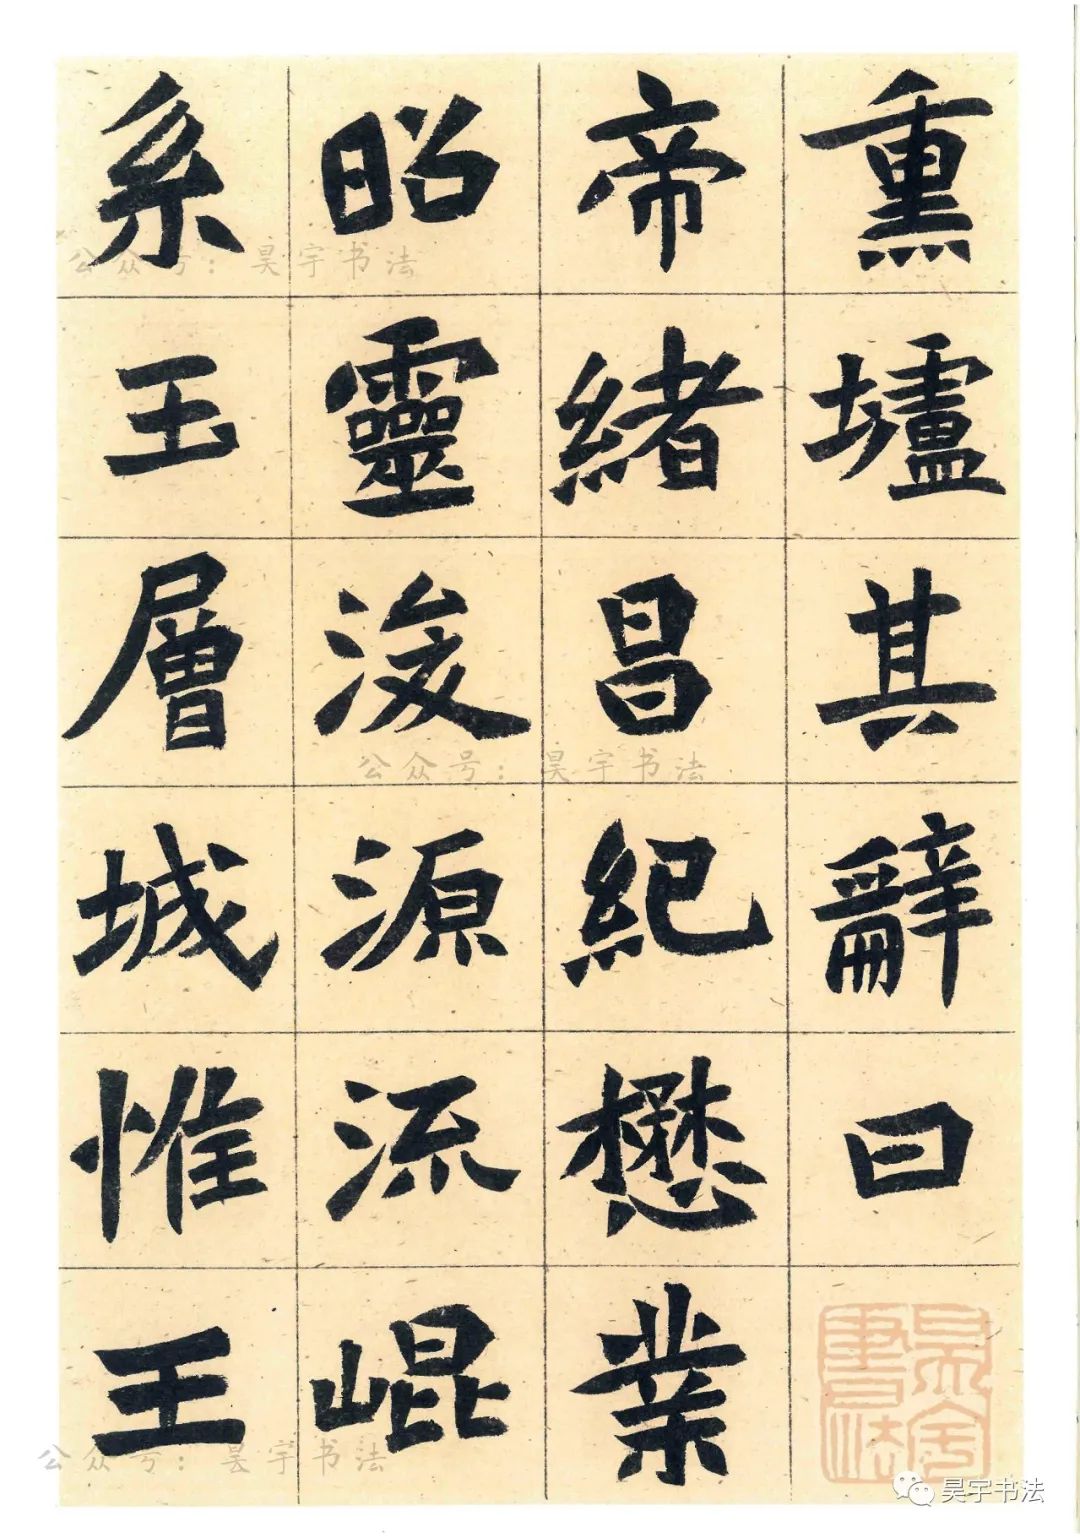 熏壚其辭曰
帝緒昌紀懋業
昭靈浚源流崐
系玉層城惟王
公众号：昊宇书法
公众号：昊宇书法
公众号：昊宇书法
昊宇書法
昊宇书法